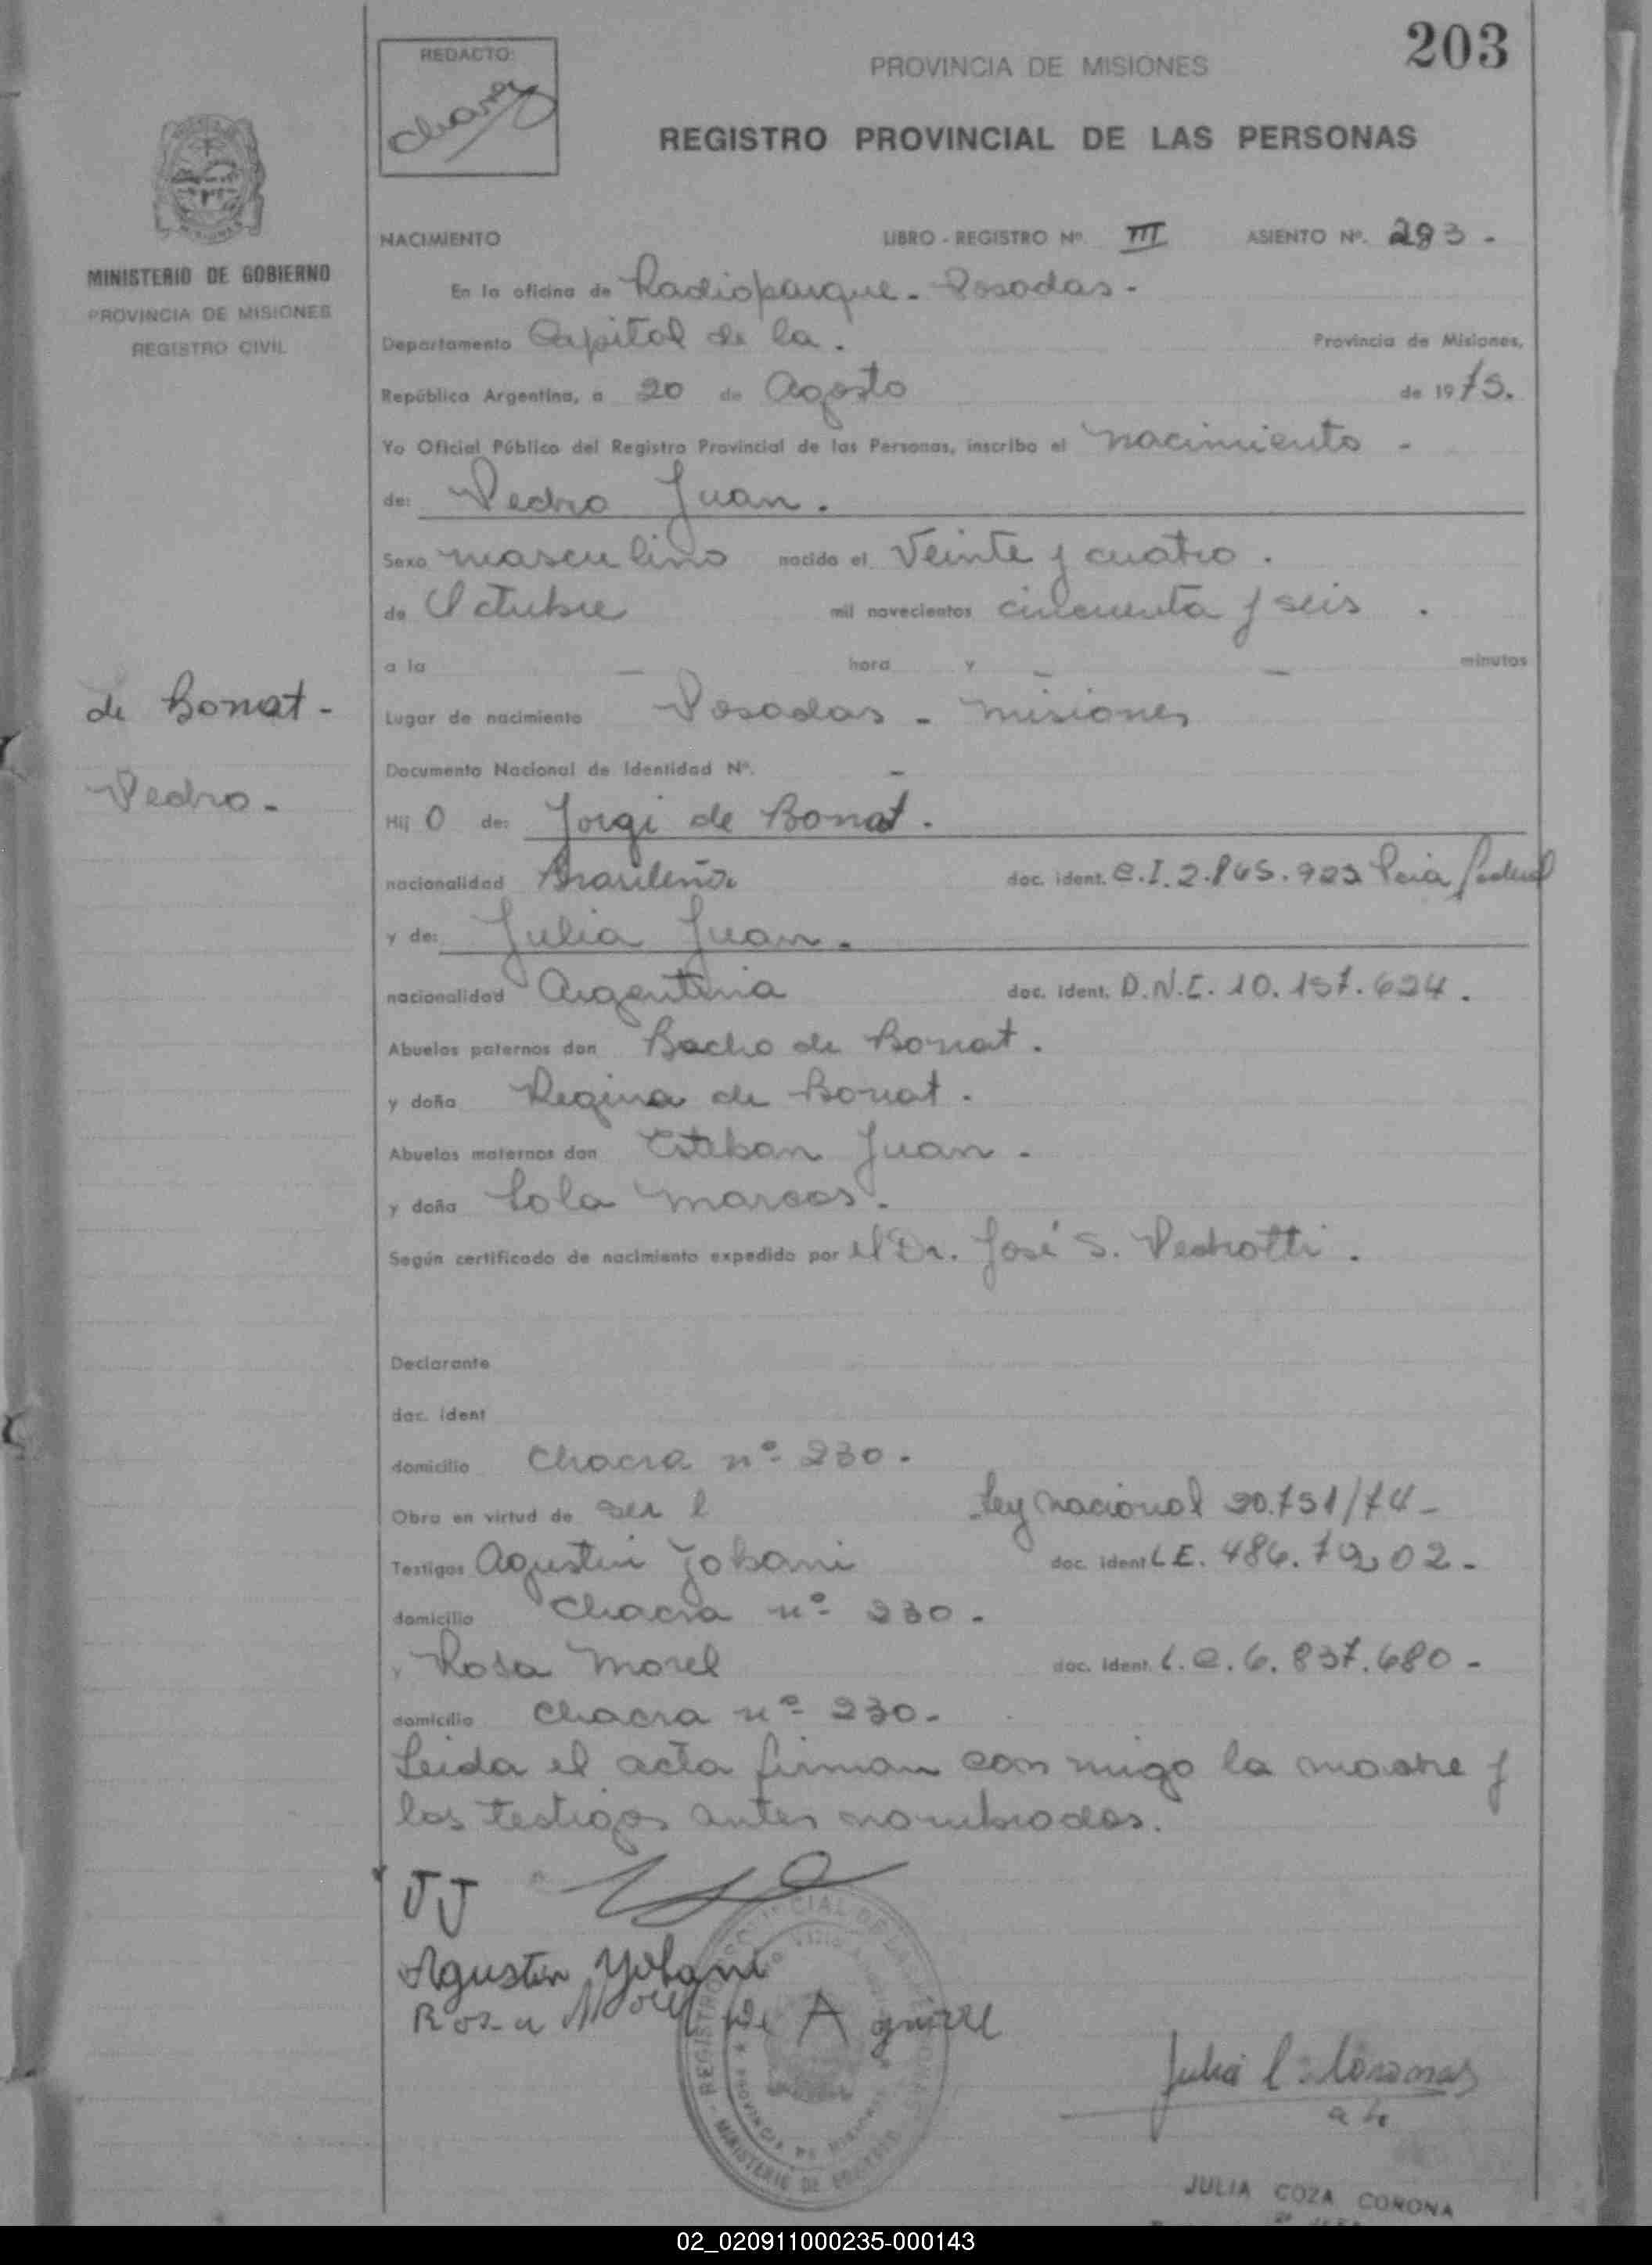 203
REDACTO:
Chavez
PROVINCIA DE MISIONES
REGISTRO PROVINCIAL DE LAS PERSONAS
MINISTERIO DE GOBIERNO
PROVINCIA DE MISIONES
REGISTRO CIVIL
NACIMIENTO LIBRO - REGISTRO Nº III ASIENTO Nº. 293 -
En la oficina de Radioparque - Posadas -
Departamento Capital de la . Provincia de Misiones,
República Argentina, a 20 de Agosto de 1975.
Yo Oficial Público del Registro Provincial de las Personas, inscribo el nacimiento -
de: Pedro Juan .
Sexo masculino nacido el Veinte y cuatro .
de Octubre mil novecientos cincuenta y seis .
a la — hora y — minutos
de Bonat -
Pedro -
Lugar de nacimiento Posadas - misiones
Documento Nacional de Identidad Nº. -
Hij o de: Jorge de Bonat .
nacionalidad Brasileña doc. ident. C.I. 2.865.923 Pcia Federal
y de: Julia Juan .
nacionalidad Argentina doc. ident. D.N.I. 10.157.624 .
Abuelos paternos don Bacho de Bonat .
y doña Regina de Bonat .
Abuelos maternos don Esteban Juan -
y doña Lola Marcos .
Según certificado de nacimiento expedido por el Dr. José S. Pedrotti .
Declarante
doc. ident
domicilio Chacra nº 230 .
Obra en virtud de Ley nacional 20.751/74 -
Testigos Agustin Yobani doc. ident L.E. 486.
domicilio Chacra nº 230 -
y Rosa Morel doc. ident. L.C. 6.837.680 -
domicilio Chacra nº 230 -
Leida el acta firman con migo la madre y
los testigos antes nombrados.
JJ
Agustin Yobani
Rosa Morel de Aguirre
REGISTRO PROVINCIAL DE LAS PERSONAS
MINISTERIO DE GOBIERNO
PROVINCIA DE MISIONES
JULIA COZA CORONA
02_020911000235-000143